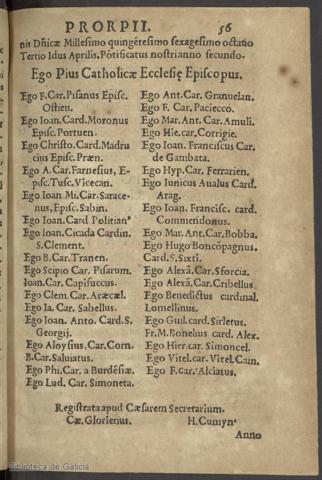 PRORPII. 56
nis Dñicæ Millesimo quingẽtesimo sexagesimo octauo
Tertio Idus Aprilis. Põtificatus nostri anno secundo.
Ego Pius Catholicæ Ecclesię Episcopus.
Ego F. Car. Pisanus Episc.
Ostien.
Ego Ioan. Card. Moronus
Episc. Portuen.
Ego Christo. Card. Madru
cius Episc. Præn.
Ego A. Car. Farnesius, E-
pisc. Tusc. Vicecan.
Ego Ioan. Mi. Car. Sarace-
nus, Episc. Sabin.
Ego Ioan. Card Politianꝰ
Ego Ioan. Cicada Cardin.
S. Clement.
Ego B. Car. Tranen.
Ego Scipio Car. Pisarum.
Ioan. Car. Capisuccus.
Ego Clem. Car. Aræcæl.
Ego Ia. Car. Sabellus.
Ego Ioan. Anto. Card. S.
Georgij.
Ego Aloysius, Car. Corn.
B. Car. Saluiatus.
Ego Phi. Car. a Burdẽsiæ.
Ego Lud. Car. Simoneta.
Ego Ant. Car. Granuelan.
Ego F. Car. Paciecco.
Ego Mar. Ant. Car. Amuli.
Ego Hie. car. Corrigie.
Ego Ioan. Franciscus Car.
de Gambata.
Ego Hyp. Car. Ferrarien.
Ego Iunicus Aualus Card.
Arag.
Ego Ioan. Francisc. card.
Commendonus.
Ego Mar. Ant. Car. Bobba.
Ego Hugo Boncõpagnus.
Card. S. Sixti.
Ego Alexã. Car. Sforcia.
Ego Alexã. Car. Cribellus
Ego Benedictus cardinal.
Lomellinus.
Ego Guil. card. Sirletus.
Fr. M. Bonelius card. Alex.
Ego Hier. car. Simoncel.
Ego Vitel. car. Vitel. Cain.
Ego F. Car. Alciatus.
Registrata apud Cæsarem Secretarium.
Cæ. Glorierius. H. Cumynꝰ
Anno
Biblioteca de Galicia